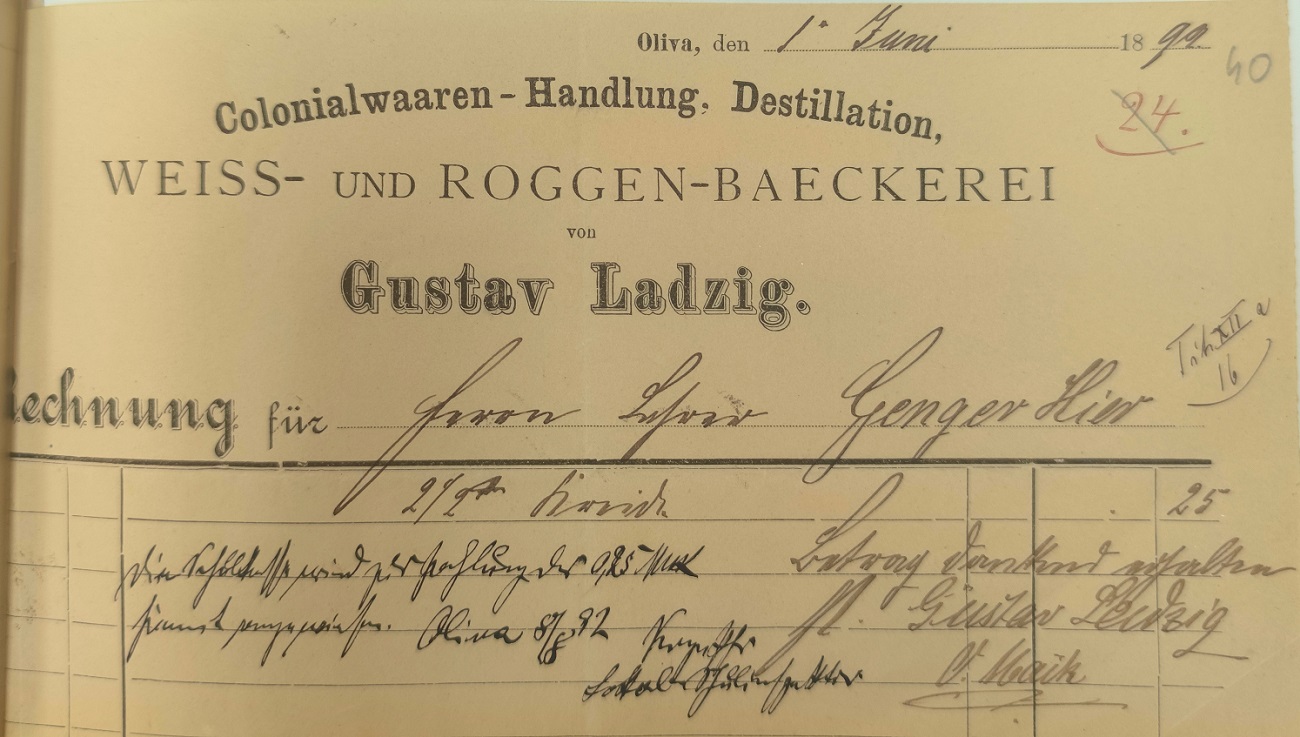 Oliva, den 1. Juni 1892.
40
24.
Colonialwaaren-Handlung, Destillation,
WEISS- UND ROGGEN-BAECKEREI
von
Gustav Ladzig.
Tit. XII a
16
Rechnung für Herrn Lehrer Genger Hier
2 1/2 Kreide 25
Die Schulkasse wird zur Zahlung der 0,25 Mark
hiermit angewiesen. Oliva 8/8 92
Lokal-Schulinspektor
Betrag dankend erhalten
Gustav Ladzig